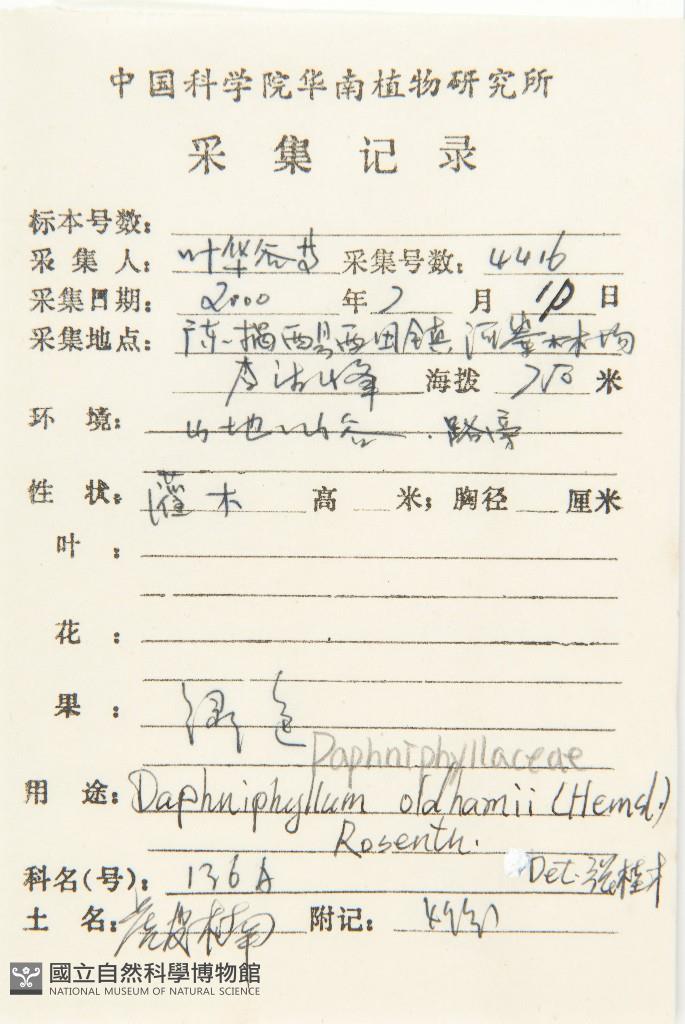 中国科学院华南植物研究所
采集记录
标本号数：
采集人：叶华谷等 采集号数：4416
采集日期：2000 年 7 月 10 日
采集地点：广东揭西县西田镇河輋林场
李望嶂 海拔 710 米
环境：山地山谷．路旁
性状：灌木 高 米；胸径 厘米
叶：
花：
果：绿色
Daphniphyllaceae
用途：Daphniphyllum oldhamii (Hemsl.)
Rosenth.
科名(号)：136A Det.
土名： 附记：
國立自然科學博物館
NATIONAL MUSEUM OF NATURAL SCIENCE